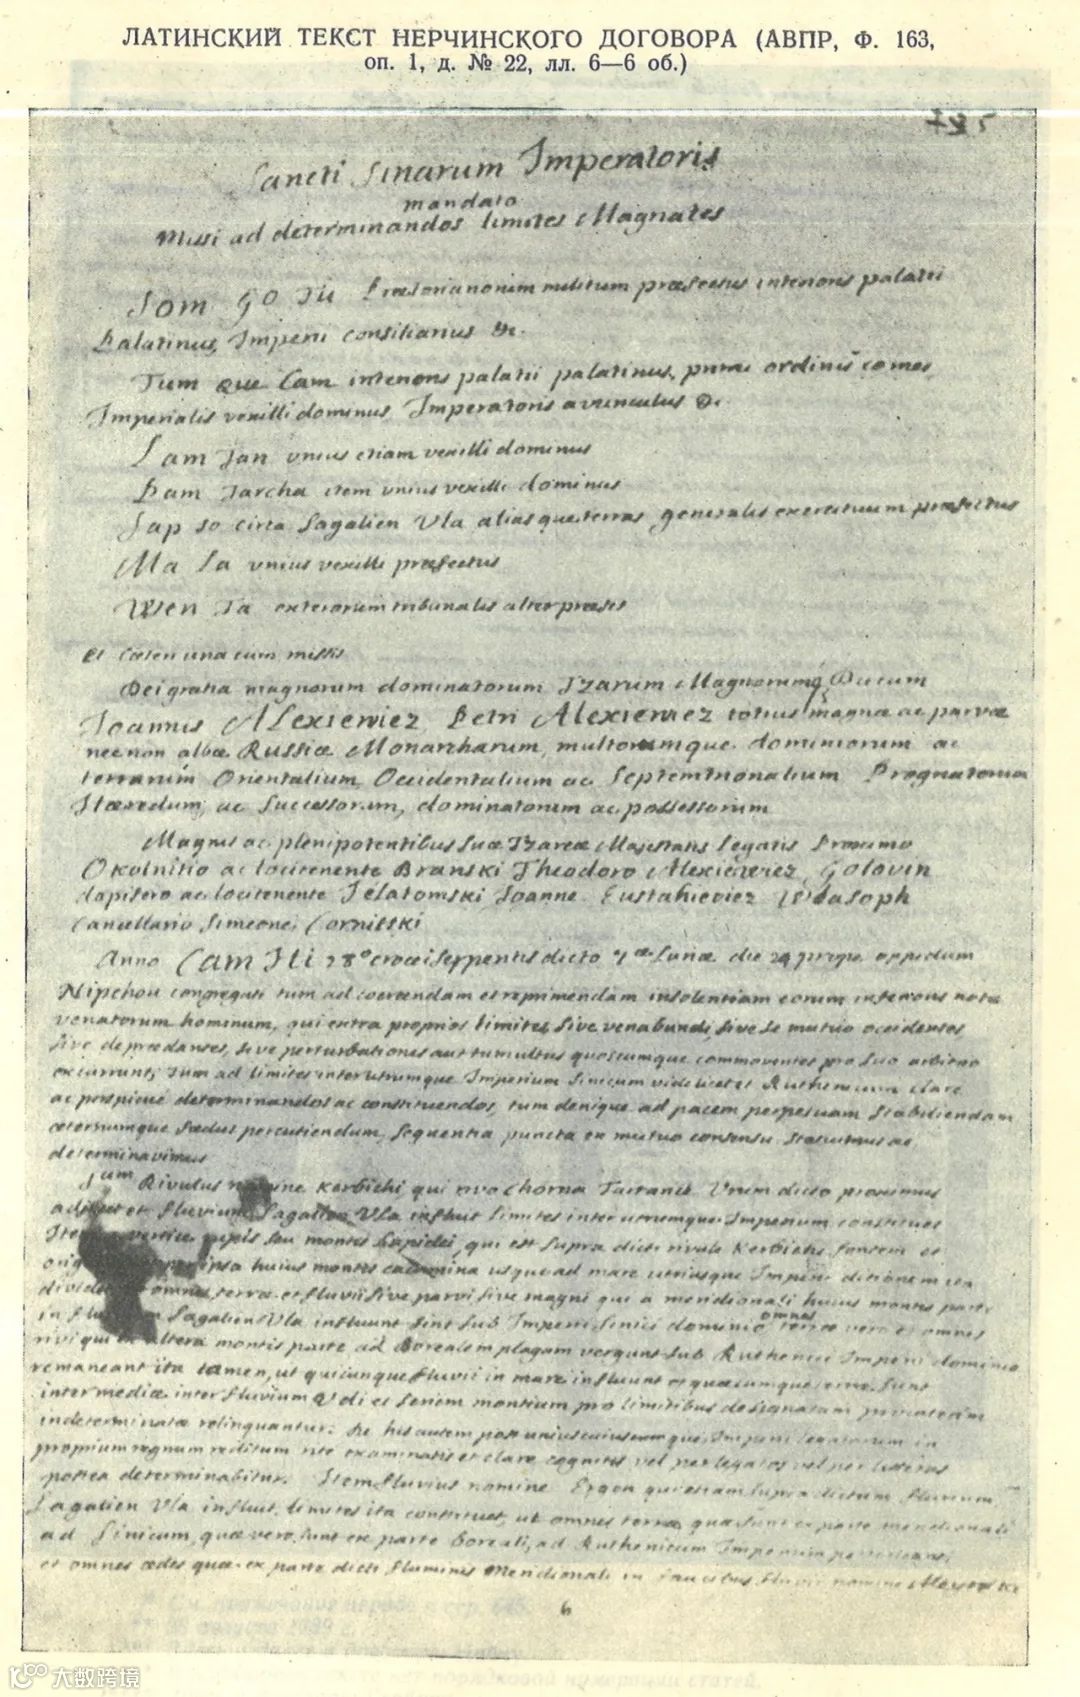 ЛАТИНСКИЙ ТЕКСТ НЕРЧИНСКОГО ДОГОВОРА (АВПР, Ф. 163,
оп. 1, д. № 22, лл. 6—6 об.)
Sancti Sinarum Imperatoris
mandato
Missi ad determinandos limites Magnates
Som Go Tu Praetorianorum militum praefectus interioris palatii
Palatinus, Imperii consiliarius &c.
Tum que Cam interioris palatii palatinus, primi ordinis comes,
Imperialis vexilli dominus, Imperatoris avunculus &c.
Lam Tan unius etiam vexilli dominus
Pam Tarcha item unius vexilli dominus
Sap so circa Sagalien Ula aliasque terras generalis exercituum praefectus
Ma La unius vexilli praefectus
Wen Ta exterorum tribunalis alter praeses
et caeteri una cum missis
Dei gratia magnorum dominatorum Tzarum Magnorumq Ducum
Joannis Alexiewicz Petri Alexiewicz totius magnae ac parvae
nec non albae Russiae Monarcharum, multorumque dominiorum ac
terrarum Orientalium, Occidentalium ac Septemtrionalium Prognatorum
Haeredum, ac Successorum, dominatorum ac possessorum
Magnis ac plenipotentibus Suae Tzareae Majestatis Legatis Proximo
Okolnitio ac locitenente Branski Theodoro Alexiewicz Golovin
dapifero ac locitenente Jelatomski Joanne Eustahievicz Wlasoph
Cancellario Simeone Cornitski
Anno Cam Hi 28° crocei serpentis dicto 7ae Lunae die 24 prope oppidum
Nipchou congregati tum ad coercendam et reprimendam insolentiam eorum inferioris notae
venatorum hominum, qui extra proprios limites, sive venabundi, sive se mutuo occidentes,
sive depraedantes, sive perturbationes aut tumultus quoscumque commoventes pro suo arbitrio
excurrunt; tum ad limites inter utrumque Imperium Sinicum videlicet et Ruthenicum clare
ac perspicue determinandos ac constituendos, tum denique ad pacem perpetuam stabiliendam
aeternumque foedus percutiendum, sequentia puncta ex mutuo consensu statuimus ac
determinavimus
1um Rivulus nomine Kerbichi qui rivo Chorna Tartarice Urum dicto proximus
adjacet et fluvium Sagalien Ula influit limites inter utrumque Imperium constituet
Item vertice rupis seu montis lapidei, qui est supra dicti rivuli Kerbichi fontem et
ipsa huius montis cacumina usque ad mare utriusque Imperii ditionem ita
omnes terrae et fluvii sive parvi sive magni qui a meridionali huius montis parte
in Sagalien Ula influunt sint sub Imperii Sinici dominio omnes terrae vero et omnes
rivi qui ex altera montis parte ad Borealem plagam vergunt sub Ruthenici Imperii dominio
remaneant ita tamen, ut quicunque fluvii in mare influunt et quaecumque terrae sunt
intermediae inter fluvium Udi et seriem montium pro limitibus designatam
indeterminatae relinquantur. De his autem post uniuscuiuscumque Imperii legatorum in
proprium regnum reditum rite examinatis et clare cognitis vel per legatos vel per litteras
postea determinabitur. Item fluvius nomine Ergon qui etiam supra dictum fluvium
Sagalien Ula influit, limites ita constituet, ut omnes terrae quae sunt ex parte meridionali
ad Sinicum, quae vero sunt ex parte boreali, ad Ruthenicum Imperium pertineant,
et omnes aedes quae ex parte dicti fluminis Meridionali in faucibus fluvii nomine
6
大数跨境